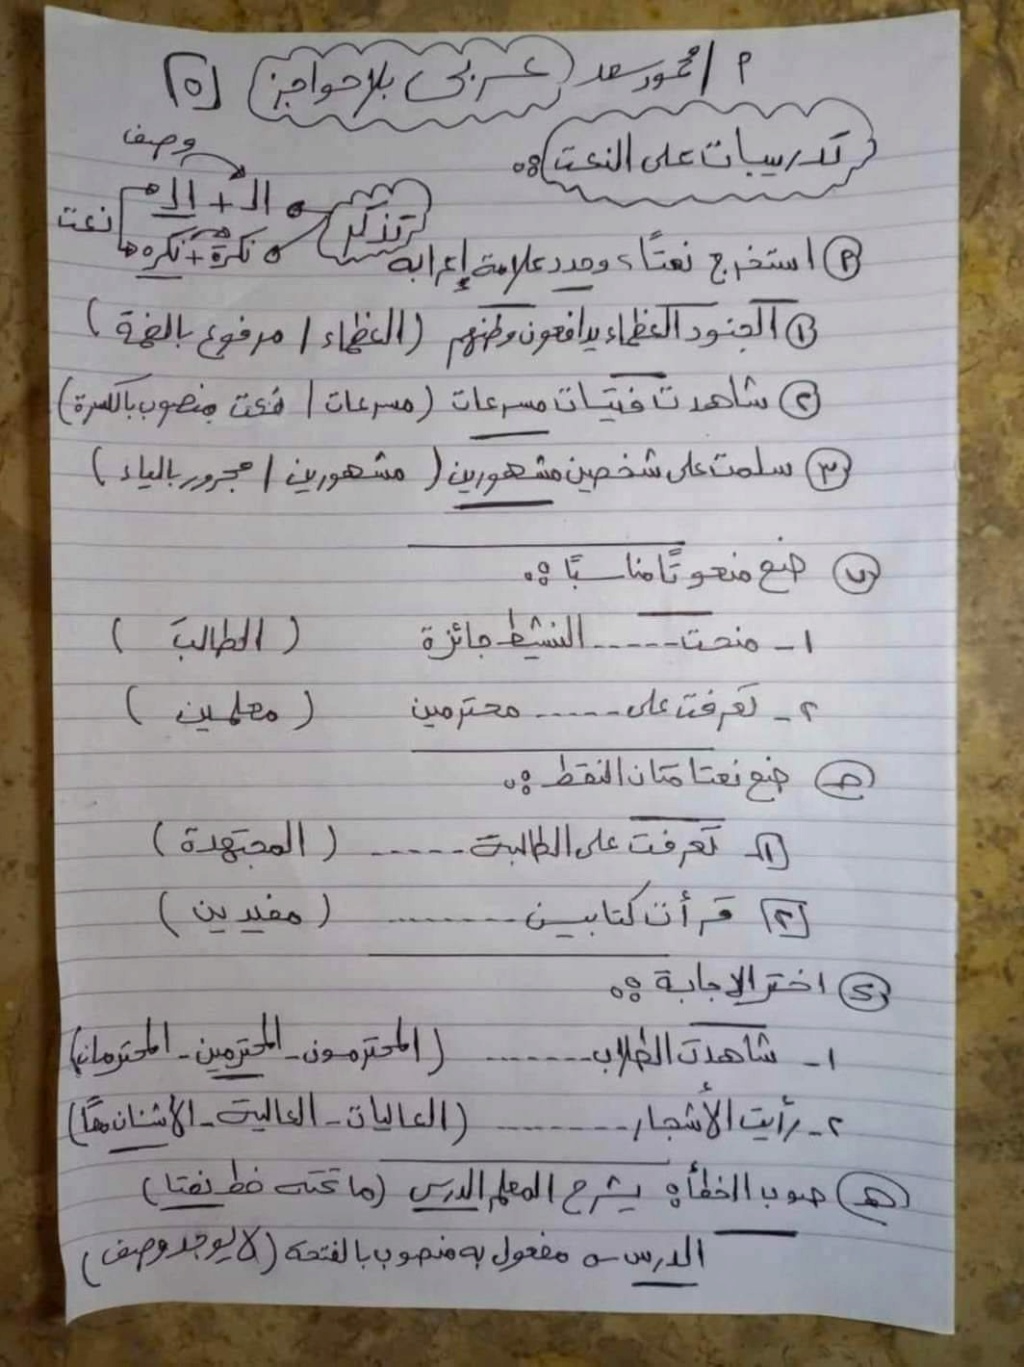 م / محمود سعد (عربي بلا حواجز) [٥]
تدريبات على النعت :
وصف
تذكر
الـ + الـ
نكرة + نكرة
نعت
(أ) استخرج نعتًا، وحدد علامة إعرابه
(١) الجنود العظماء يدافعون وطنهم (العظماء / مرفوع بالضمة)
(٢) شاهدت فتيات مسرعات (مسرعات / نعت منصوب بالكسرة)
(٣) سلمت على شخصين مشهورين (مشهورين / مجرور بالياء)
(ب) ضع منعوتًا مناسبًا :
١ - منحت ...... النشيط جائزة (الطالبَ)
٢ - تعرفت على ...... محترمين (معلمين)
(ج) ضع نعتا مكان النقط :
[١] تعرفت على الطالبة ...... (المجتهدة)
[٢] قرأت كتابين ........ (مفيدين)
(د) اختر الإجابة :
١ - شاهدت الطلاب ........ (المحترمون - المحترمين - المحترمان)
٢ - رأيت الأشجار ........ (العاليات - العالية - الأثنان معًا)
(هـ) صوب الخطأ : يشرح المعلم الدرس (ما تحته خط نعتا)
الدرس ← مفعول به منصوب بالفتحة (لا يوجد وصف)